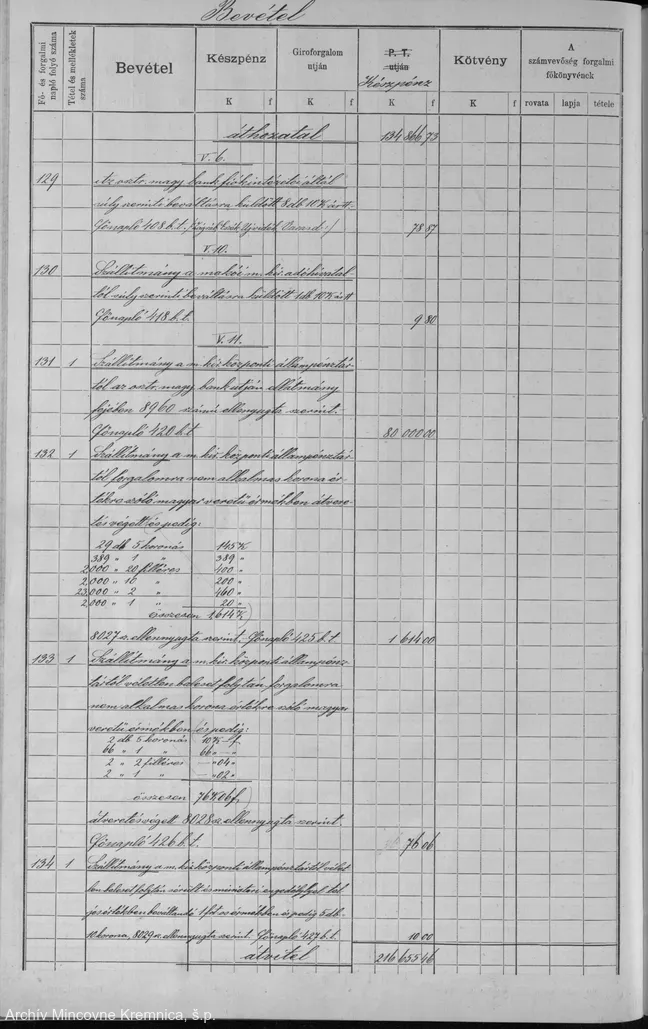 Bevétel
Fő- és forgalmi napló folyó száma
Tétel és mellékletek száma
Bevétel
Készpénz
Giroforgalom utján
P. T. utján
Készpénz
Kötvény
A számvevőség forgalmi főkönyvének
K f K f K f rovata lapja tétele
áthozatal 134 866 73
V. 6.
129 Az osztr. magy. bank fiókintézetei által
súly szerinti beváltásra küldött 8 db 10 K ás
Főnapló 408 b. t. Ujvidék, Varasd :/ 78 87
V. 10.
130 Szállitmány a makói m. kir. adóhivatal
tól súly szerinti beváltásra küldött 1 db 10 K
Főnapló 418 b. t. 9 80
V. 11.
131 1 Szállitmány a m. kir. központi állampénztár
tól az osztr. magy. bank utján ellátmány
fejében 8960 számú ellennyugta szerint.
Főnapló 420 b. t 80 000 00
132 1 Szállitmány a m. kir. központi állampénztár
tól forgalomra nem alkalmas korona ér
tékre szóló magyar veretű érmékben átvere
tés végett és pedig:
29 db 5 koronás 145 K
389 " 1 " 389 "
2,000 " 20 filléres 400 "
2,000 " 10 " 200 "
23,000 " 2 " 460 "
2,000 " 1 " 20 "
összesen 1614 K
8027 sz. ellennyugta szerint. Főnapló 425 b. t 1 614 00
133 1 Szállitmány a m. kir. központi állampénz
tártól véletlen baleset folytán forgalomra
nem alkalmas korona értékre szóló magyar
veretű érmékben és pedig:
2 db 5 koronás 10 K – f
66 " 1 " 66 " – "
2 " 2 filléres – " 04 "
2 " 1 " – " 02 "
összesen 76 K 06 f
átveretés végett 8028 sz. ellennyugta szerint.
Főnapló 426 b. t. 76 06
134 1 Szállitmány a m. kir. központi állampénztártól vélet
len baleset folytán sérült és miniszteri engedélylyel tel
jes értékben beváltandó érmékben és pedig 5 db
10 korona, 8029 sz. ellennyugta szerint. Főnapló 427 b. t. 10 00
átvitel 216 655 46
Archív Mincovne Kremnica, š.p.